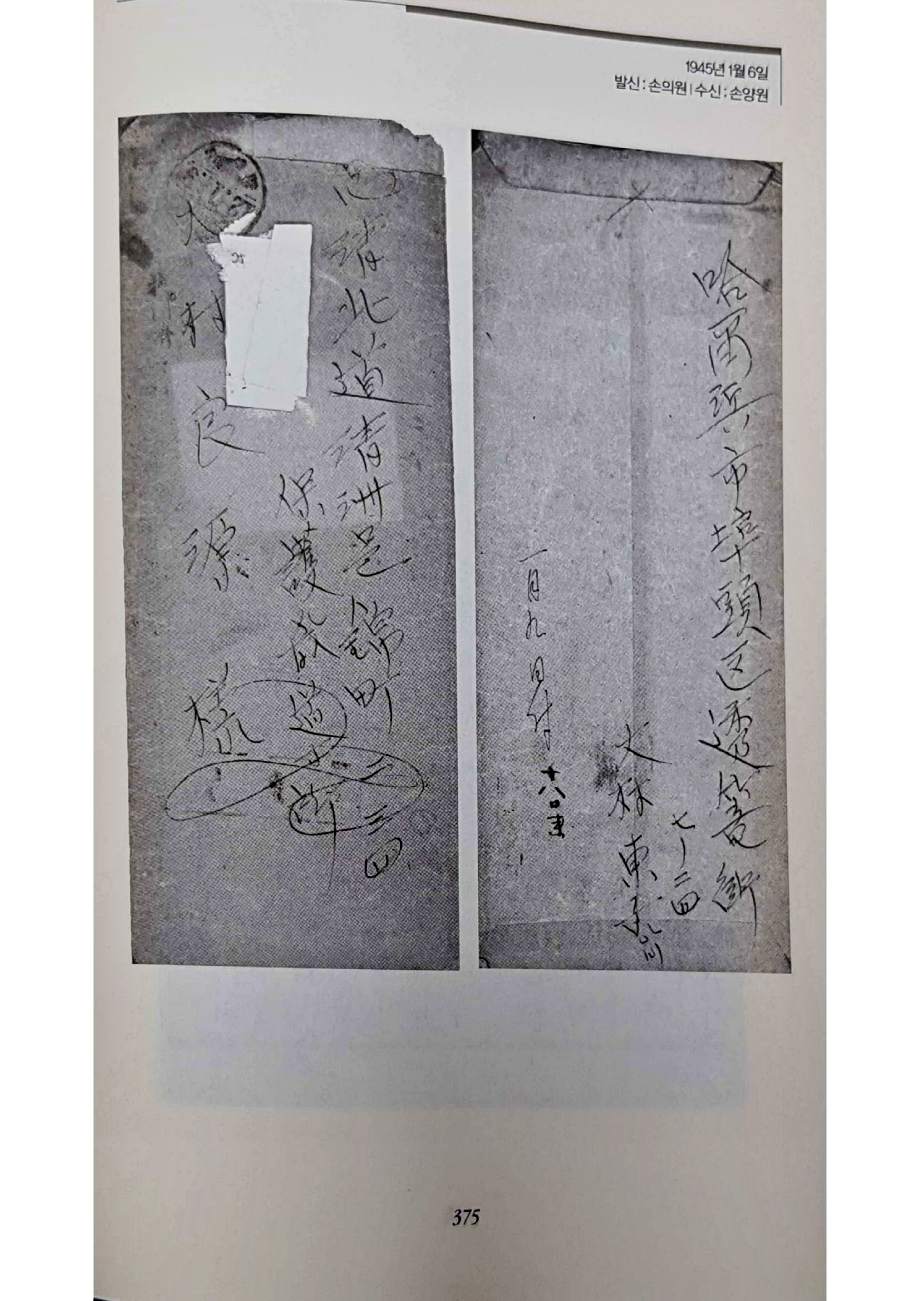 1945년 1월 6일
발신 : 손의원 | 수신 : 손양원
忠淸北道淸洲邑錦町
二三四
保護
大村良源様
哈爾浜市埠頭区透籠街
七ノ二四
大林東
一月九日付
十八日
375